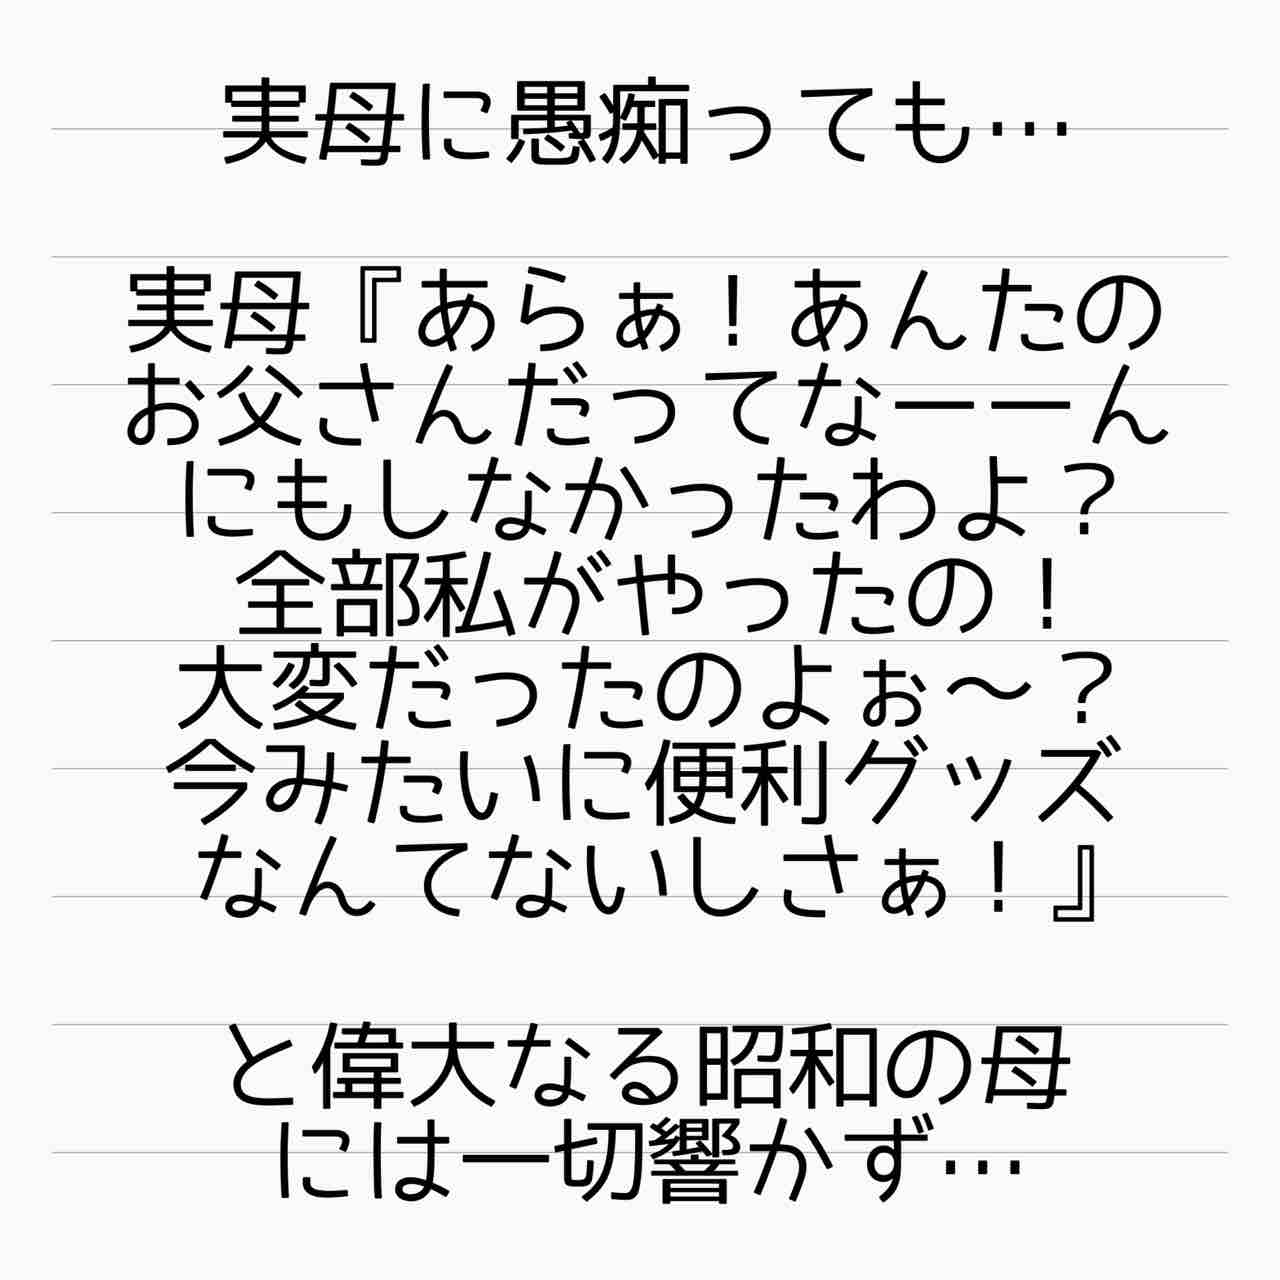 実母に愚痴っても…
実母『あらぁ！あんたの
お父さんだってなーーん
にもしなかったわよ？
全部私がやったの！
大変だったのよぉ〜？
今みたいに便利グッズ
なんてないしさぁ！』
と偉大なる昭和の母
には一切響かず…